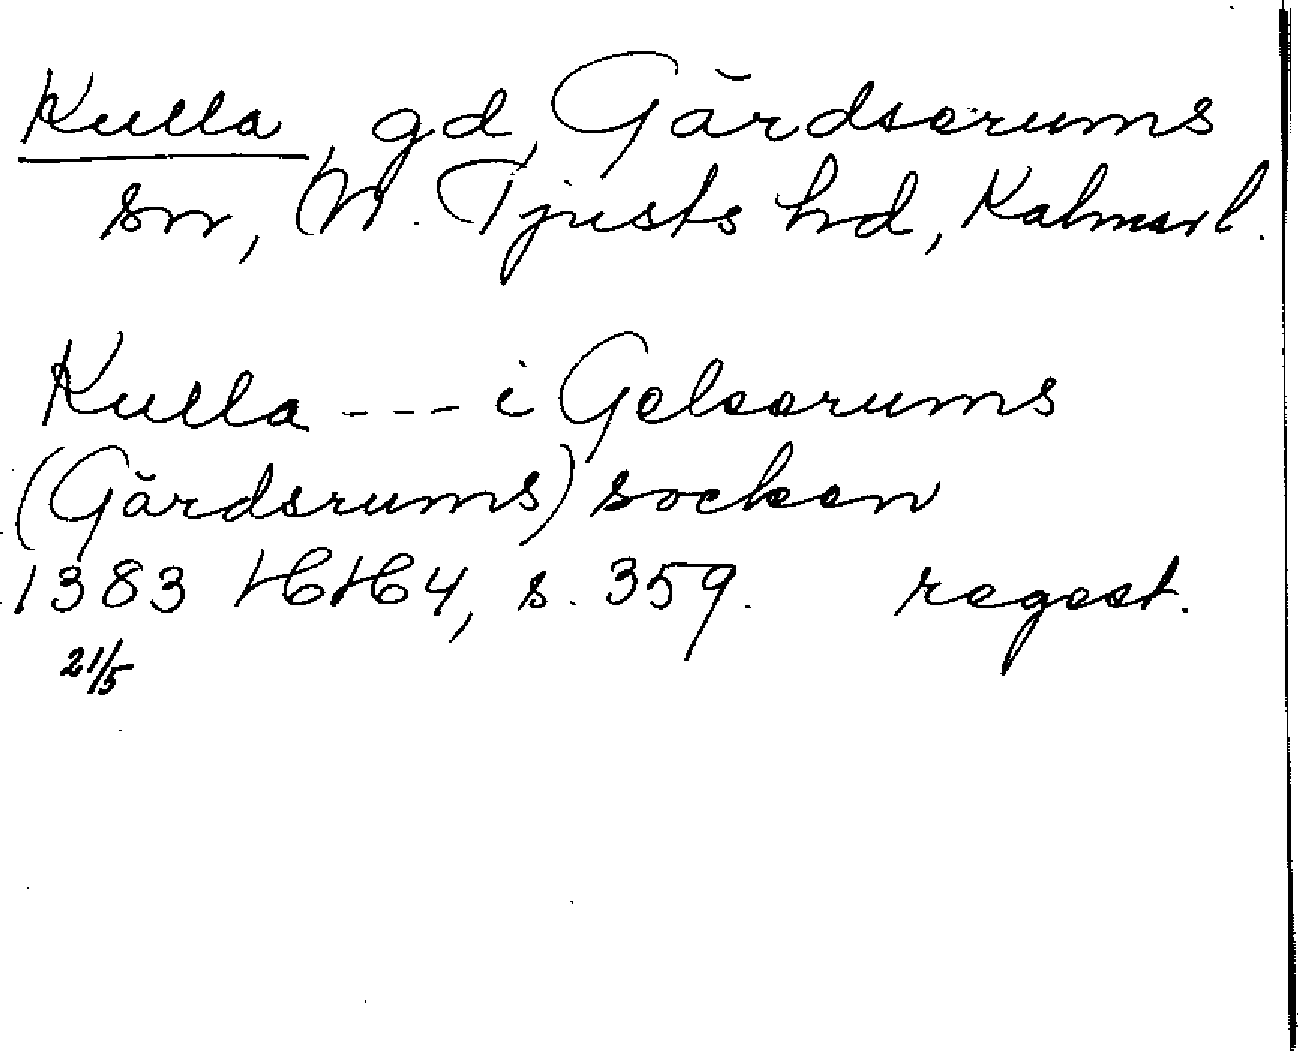 Kulla, gd, Gärdserums
sn, N. Tjusts hd, Kalmarl.
Kulla --- i Gelserums
(Gärdsrums) socken
1383 HH4, s. 359. regest.
21/5